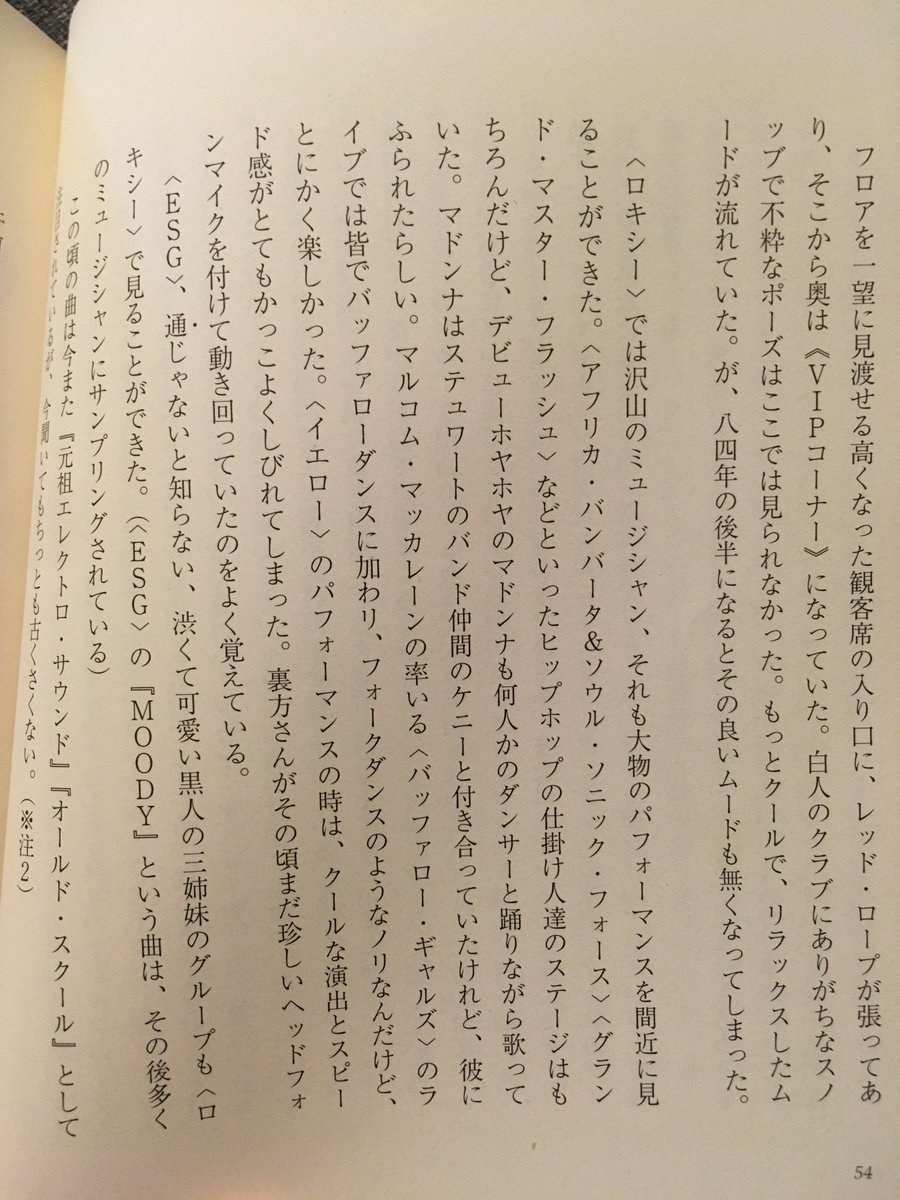 フロアを一望に見渡せる高くなった観客席の入り口に、レッド・ロープが張ってあ
り、そこから奥は《VIPコーナー》になっていた。白人のクラブにありがちなスノ
ッブで不粋なポーズはここでは見られなかった。もっとクールで、リラックスしたム
ードが流れていた。が、八四年の後半になるとその良いムードも無くなってしまった。
〈ロキシー〉では沢山のミュージシャン、それも大物のパフォーマンスを間近に見
ることができた。〈アフリカ・バンバータ&ソウル・ソニック・フォース〉〈グラン
ド・マスター・フラッシュ〉などといったヒップホップの仕掛け人達のステージはも
ちろんだけど、デビューホヤホヤのマドンナも何人かのダンサーと踊りながら歌って
いた。マドンナはステュワートのバンド仲間のケニーと付き合っていたけれど、彼に
ふられたらしい。マルコム・マッカレーンの率いる〈バッファロー・ギャルズ〉のラ
イブでは皆でバッファローダンスに加わり、フォークダンスのようなノリなんだけど、
とにかく楽しかった。〈イエロー〉のパフォーマンスの時は、クールな演出とスピー
ド感がとてもかっこよくしびれてしまった。裏方さんがその頃まだ珍しいヘッドフォ
ンマイクを付けて動き回っていたのをよく覚えている。
〈ESG〉、通じゃないと知らない、渋くて可愛い黒人の三姉妹のグループも〈ロ
キシー〉で見ることができた。(〈ESG〉の『MOODY』という曲は、その後多く
のミュージシャンにサンプリングされている)
この頃の曲は今また『元祖エレクトロ・サウンド』『オールド・スクール』として
注目されているが、今聞いてもちっとも古くさくない。(※注2)
54